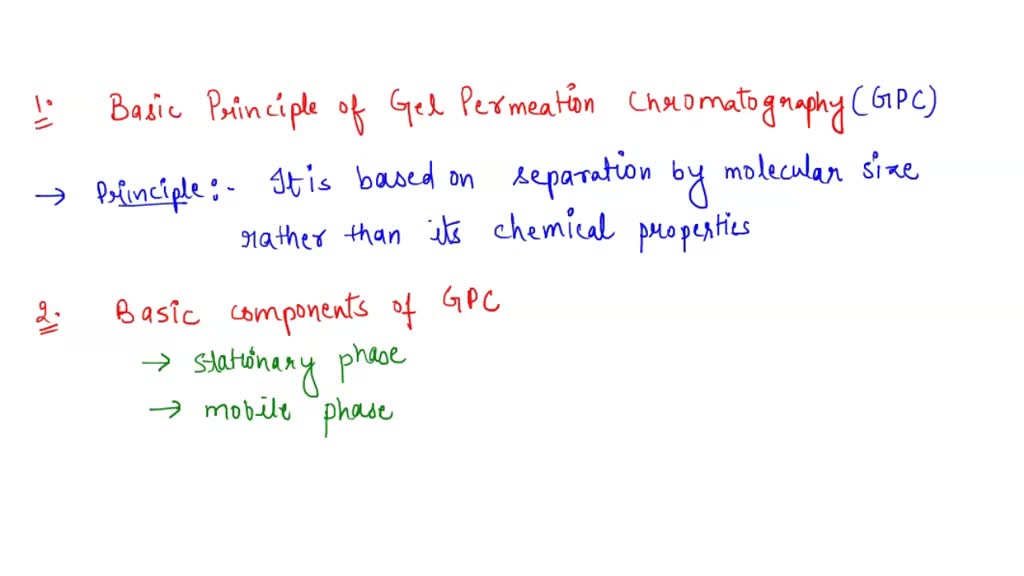 1. Basic Principle of Gel Permeation Chromatography (GPC)
→ Principle:- It is based on separation by molecular size
rather than its chemical properties
2. Basic components of GPC
→ stationary phase
→ mobile phase